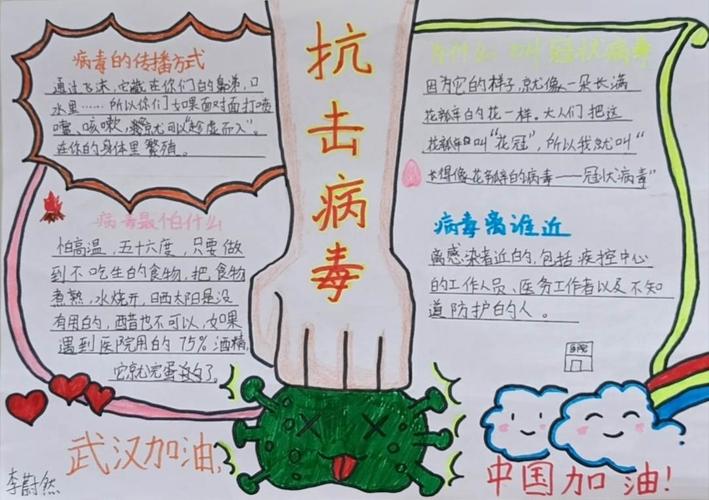 抗击病毒
病毒的传播方式
通过飞沫,它藏在你们的鼻涕,口
水里……所以你们如果面对面打喷
嚏、咳嗽,就可以“趁虚而入”。
在你的身体里繁殖。
病毒最怕什么
怕高温,五十六度,只要做
到不吃生的食物,把食物
煮熟,水烧开,日晒太阳是没
有用的,醋也不可以,如果
遇到医院用的75%酒精,
它就完蛋了。
为什么叫冠状病毒
因为它的样子,就像一朵长满
花瓣的花一样。大人们把这
花瓣叫“花冠”,所以我就叫“
长得像花瓣的病毒——冠状病毒”
病毒离谁近
离感染者近的,包括疾控中心
的工作人员、医务工作者以及不知
道防护的人。
医院
武汉加油!
中国加油!
李蔚然